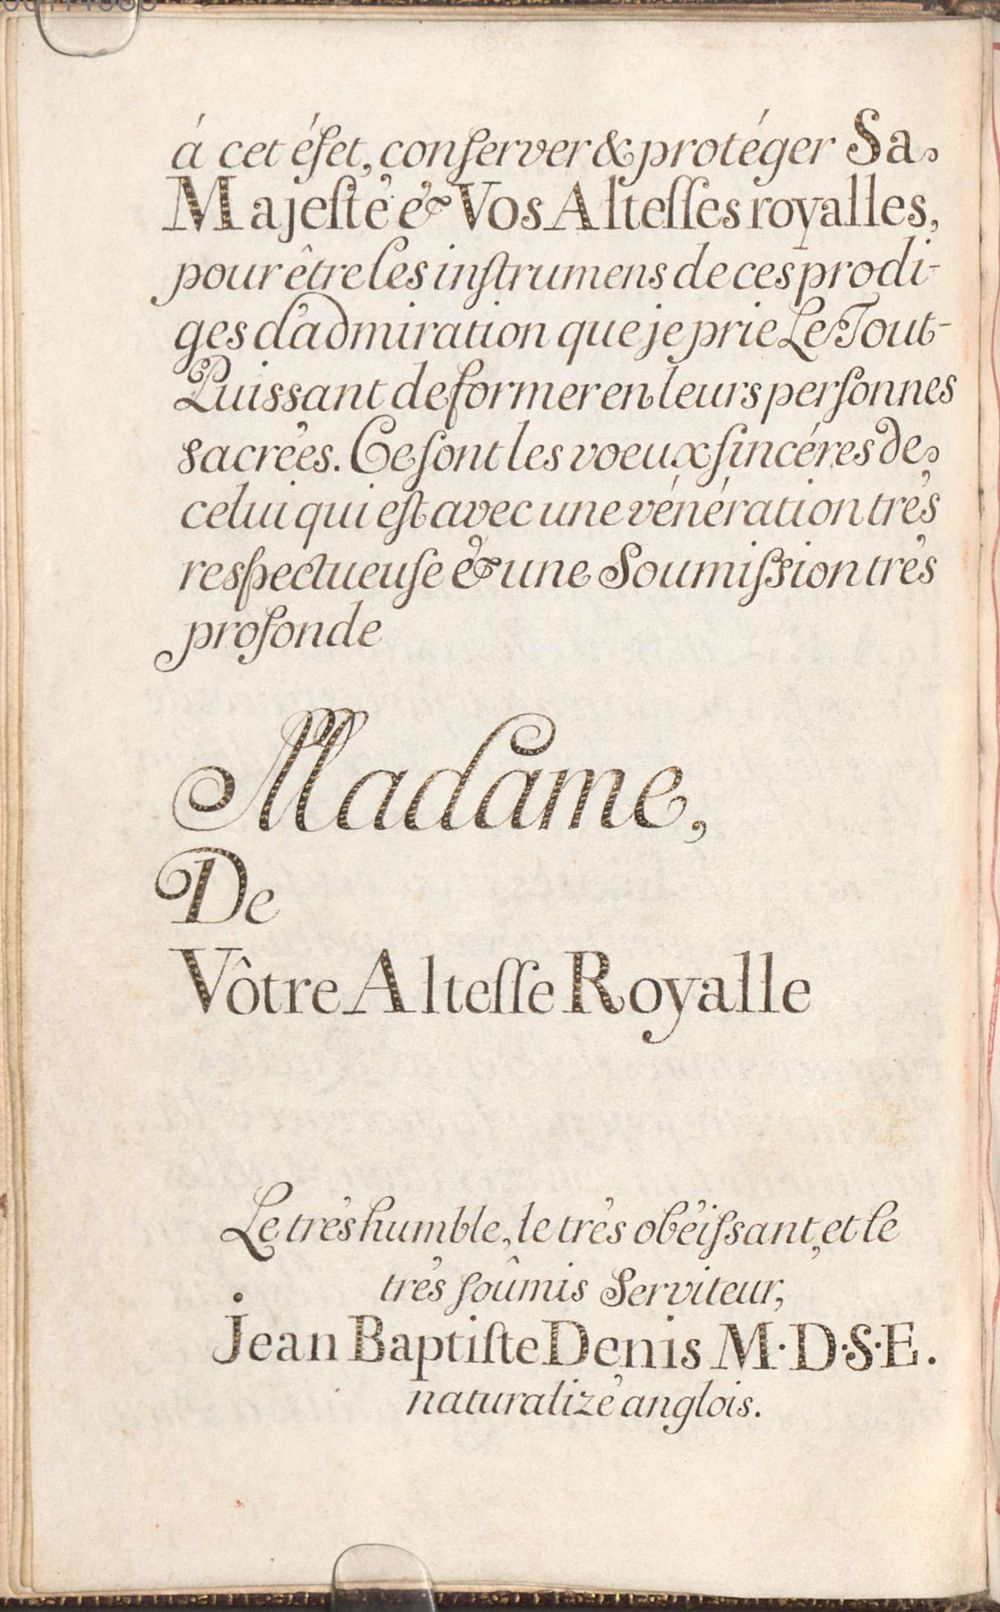 á cet éfet, conserver & protéger Sa
Majesté & Vos Altesses royalles,
pour être les instrumens de ces prodi-
ges d'admiration que je prie Le Tout-
Puissant de former en leurs personnes
sacrées. Ce sont les voeux sincéres de
celui qui est avec une vénération trés
respectueuse & une Soumission trés
profonde
Madame,
De
Vôtre Altesse Royalle
Le trés humble, le trés obéissant, et le
trés soûmis Serviteur,
Jean Baptiste Denis M·D·S·E.
naturalizé anglois.